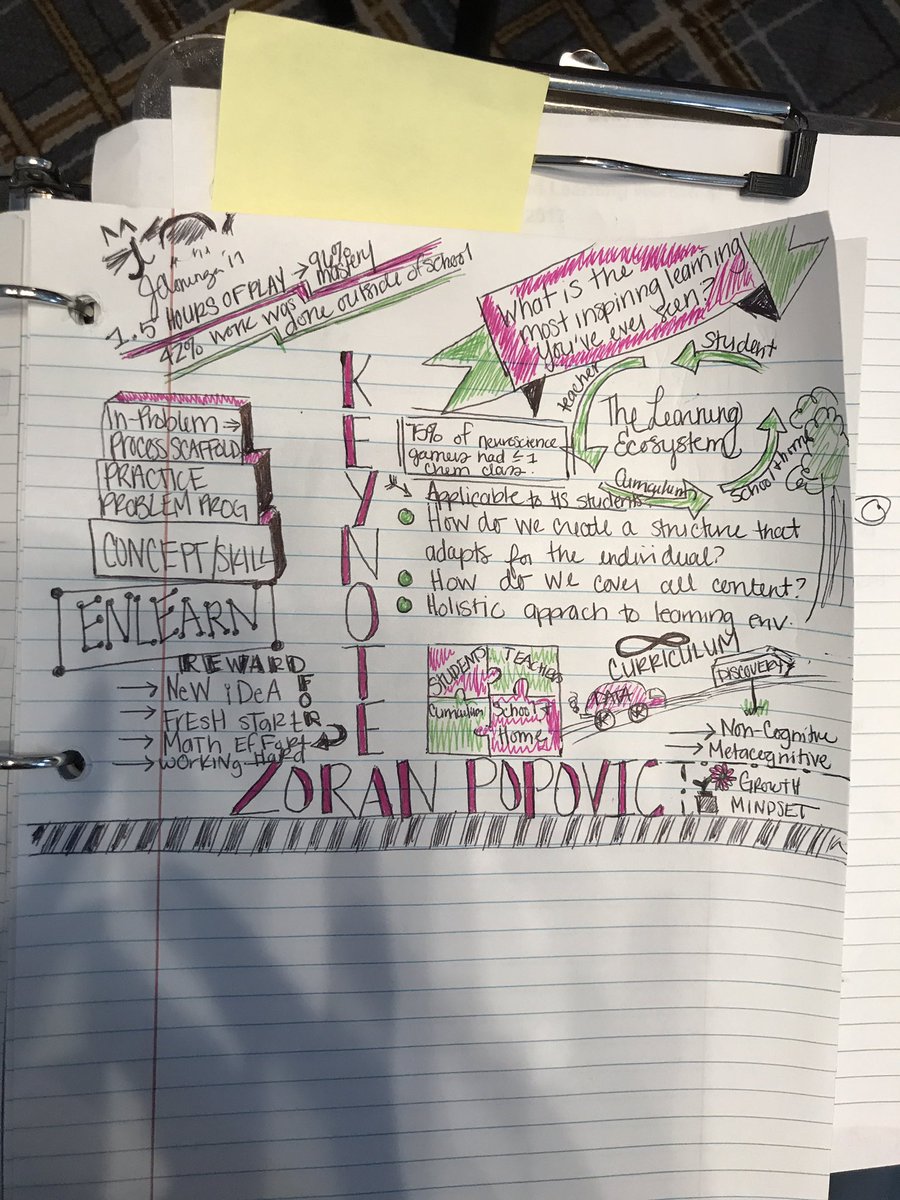 1.5 HOURS OF PLAY → 96% mastery
42% work was done outside of school
What is the
most inspiring learning
you've ever seen?
KEYNOTE
In-Problem →
PROCESS SCAFFOLD
PRACTICE
PROBLEM PROG
CONCEPT/SKILL
ENLEARN
REWARD
FOR
→ New iDeA
→ Fresh start
→ Math Effort
→ Working Hard
75% of neuroscience
gamers had ≤ 1
chem class.
Applicable to HS students.
How do we create a structure that
adapts for the individual?
How do we cover all content?
Holistic apprach to learning env.
The Learning
Ecosystem
Student
teacher
Curriculum
School + home
STUDENTS
TEACHER
Curriculum
School +
Home
CURRICULUM
DATA
DISCOVERY
→ Non-Cognitive
→ Metacognitive
GROWTH
MINDSET
ZORAN POPOVIC